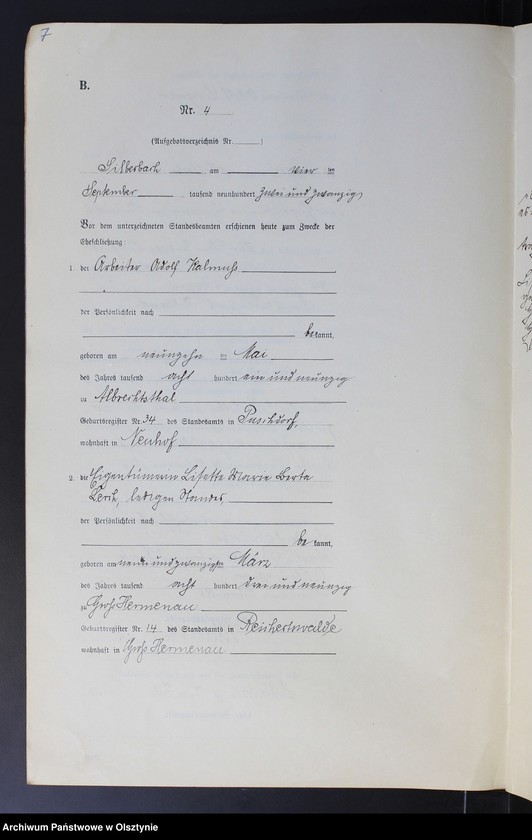 7
B.
Nr. 4
(Aufgebotsverzeichnis Nr. )
Silberbach am vier ten
September tausend neunhundert zwei und zwanzig
Vor dem unterzeichneten Standesbeamten erschienen heute zum Zwecke der
Eheschließung:
1. der Arbeiter Adolf Kalmuss
der Persönlichkeit nach
be kannt,
geboren am neunzehn ten Mai
des Jahres tausend acht hundert ein und neunzig
zu Albrechtsthal
Geburtsregister Nr. 34 des Standesamts in Puschdorf,
wohnhaft in Neuhof
2. die Eigentümerin Lisette Marie Berta
ledigen Standes
der Persönlichkeit nach
be kannt,
geboren am neun und zwanzigsten März
des Jahres tausend acht hundert drei und neunzig
zu Groß Hermenau
Geburtsregister Nr. 14 des Standesamts in Reichertswalde
wohnhaft in Groß Hermenau
Archiwum Państwowe w Olsztynie